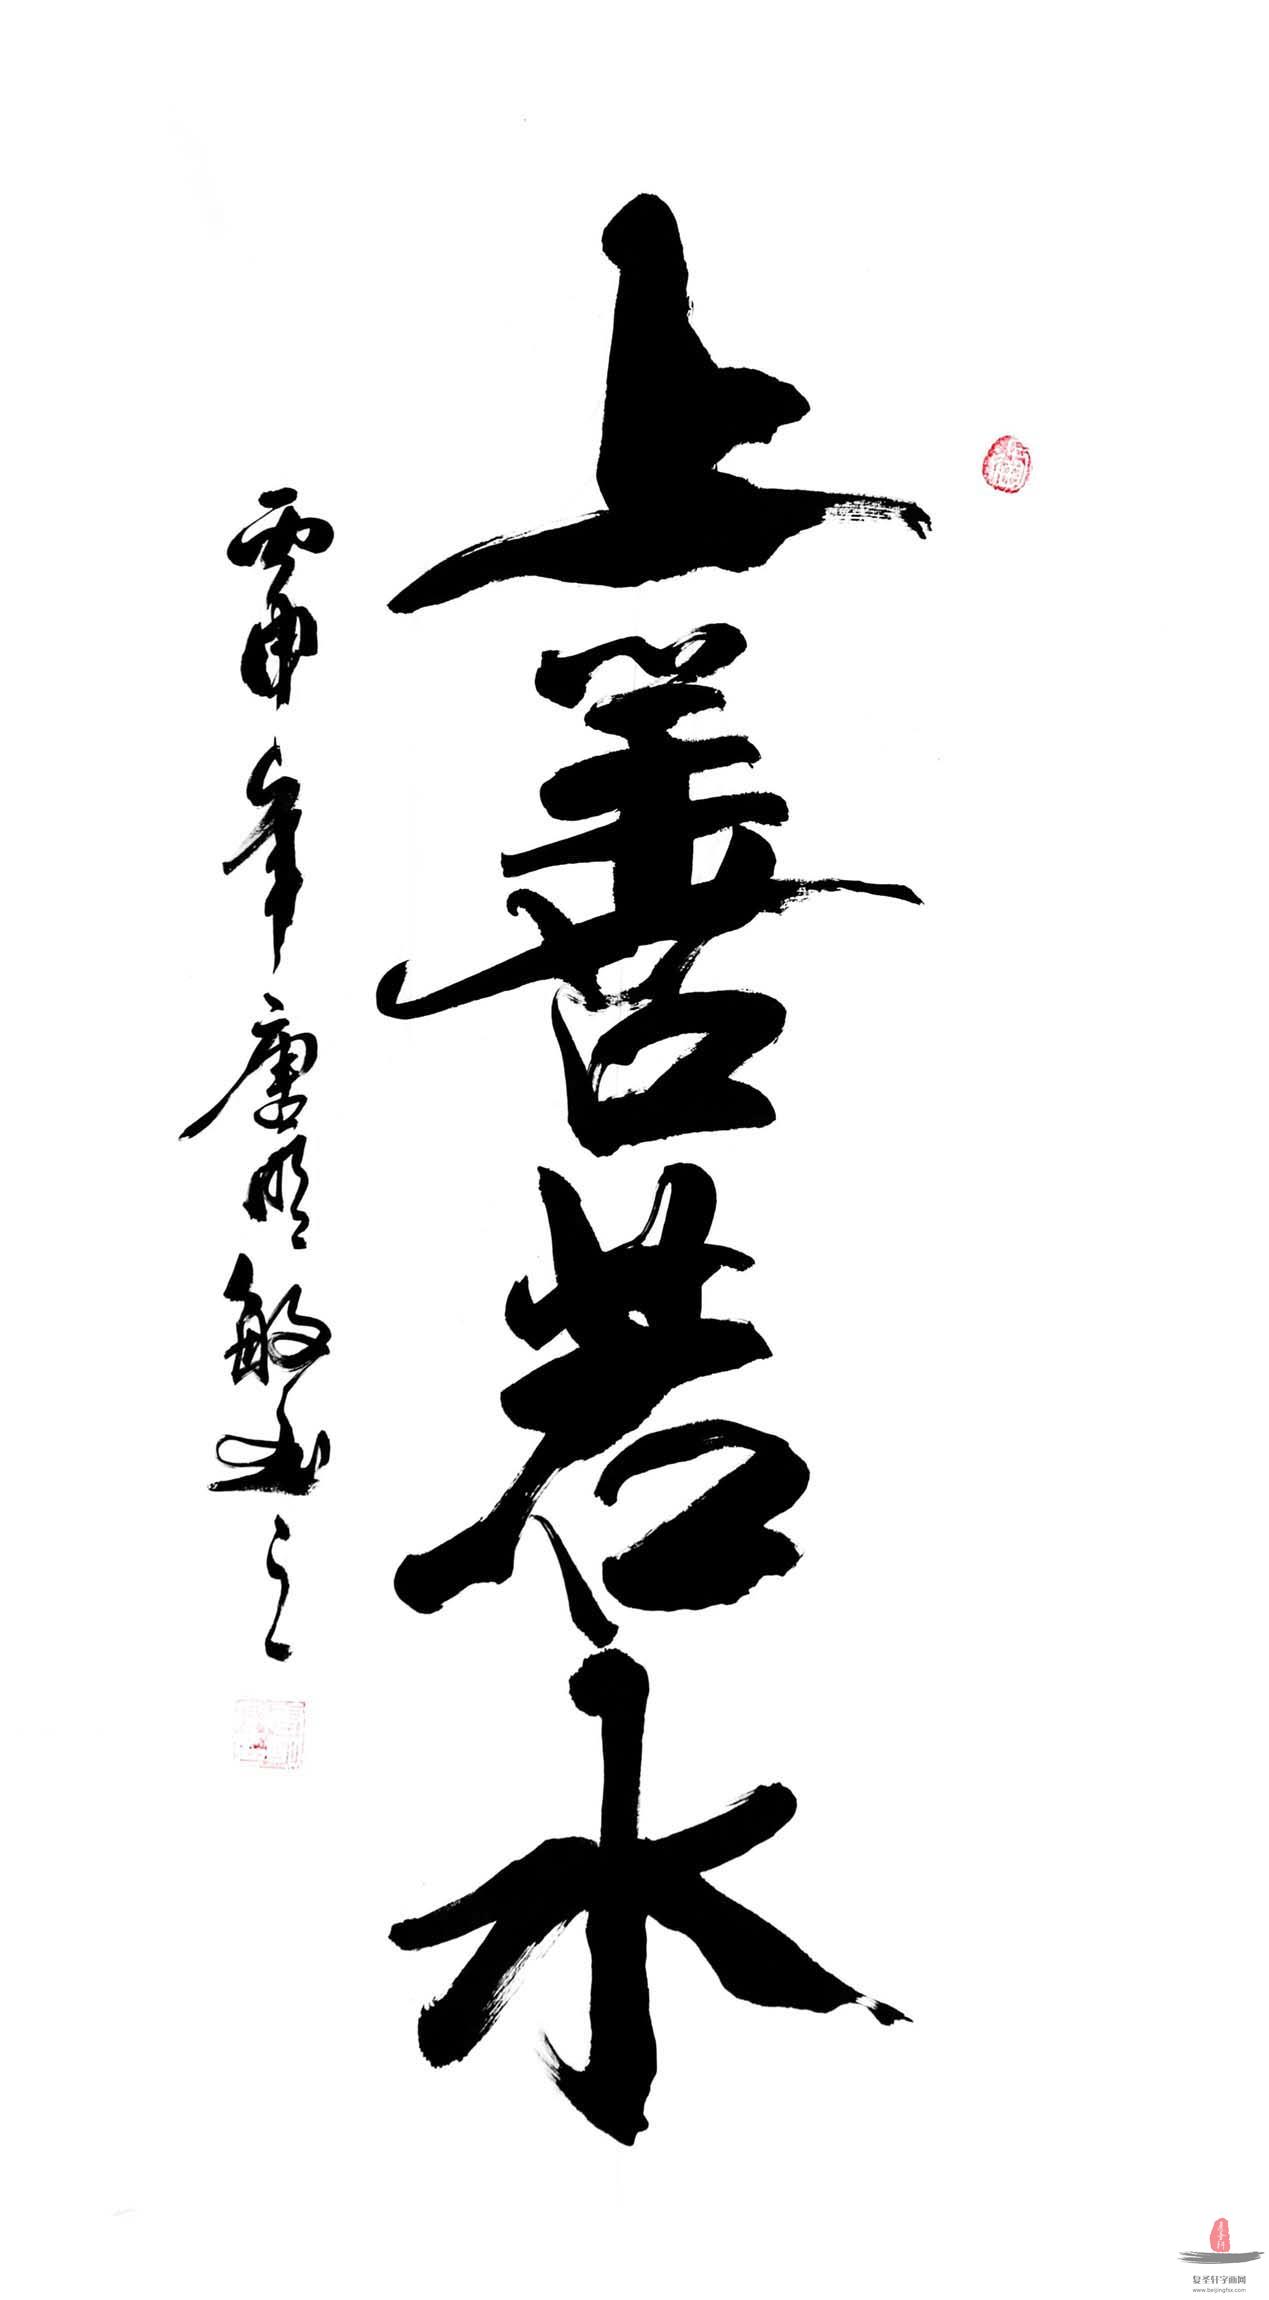 上善若水
丙申年唐明敏书之
复圣轩字画网
www.beijingfsx.com